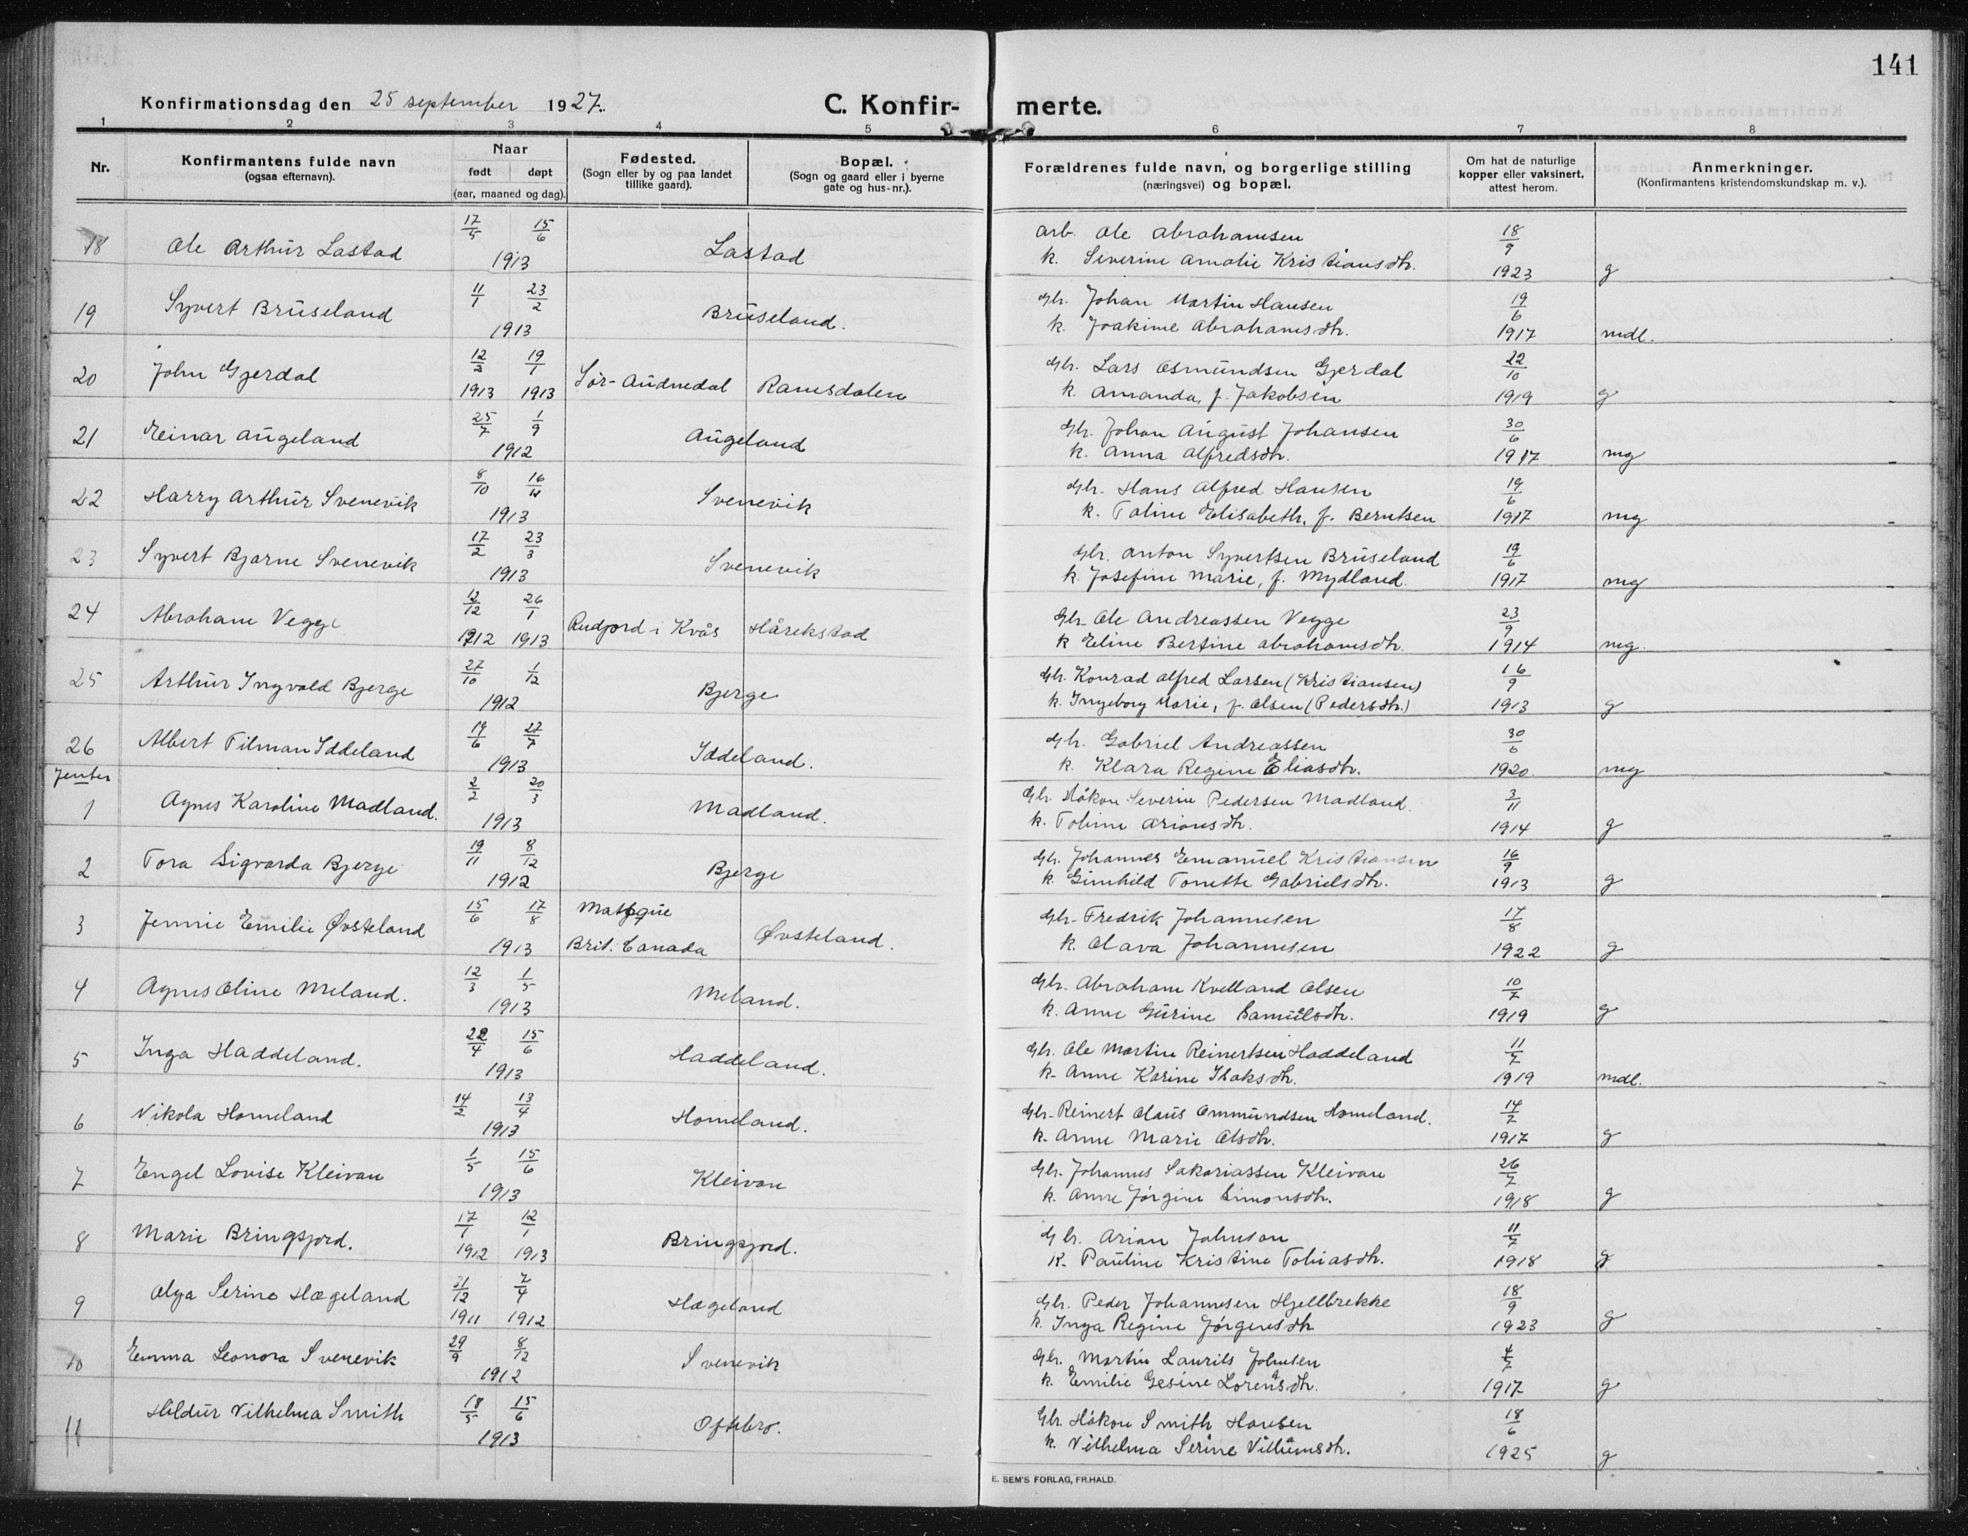 141
Konfirmationsdag den 25 september 1927.
C. Konfir- merte.
1 2 3 4 5 6 7 8
Nr.
Konfirmantens fulde navn
(ogsaa efternavn).
Naar
født døpt
(aar, maaned og dag).
Fødested.
(Sogn eller by og paa landet
tillike gaard).
Bopæl.
(Sogn og gaard eller i byerne
gate og hus-nr.).
Forældrenes fulde navn, og borgerlige stilling
(næringsvei) og bopæl.
Om hat de naturlige
kopper eller vaksinert,
attest herom.
Anmerkninger.
(Konfirmantens kristendomskundskap m. v.).
18 Ole Arthur Lastad 17/5 15/6 1913 Lastad arb. Ole Abrahamsen 18/9
k. Severine Amalie Kristiansdtr. 1923 g
19 Syvert Brúseland 11/1 23/2 1913 Brúseland. Gbr. Johan Martin Hansen 19/6
k. Joakime Abrahamsdtr. 1917 mdl.
20 John Gjerdal 12/2 19/1 Gbr. Lars Osmundsen Gjerdal 22/10
1913 1913 Sør-Audnedal Ramsdalen k. Amanda, f. Jakobsen 1919 g
21 Einar Augeland 25/7 1/9 1912 Augeland Gbr. Johan August Johansen 30/6
k. Anna Alfredsdtr. 1917 mg
22 Harry Arthur Svenevik 8/10 16/11 1913 Svenevik Gbr. Hans Alfred Hansen 19/6
k. Toline Elisabeth, f. Berntsen 1917 mg
23 Syvert Bjarne Svenevik 17/2 23/3 1913 Svenevik Gbr. Anton Syvertsen Brúseland 19/6
k. Josefine Marie, f. Mydland. 1917 mg
24 Abraham Vegge 12/12 26/1 Gbr. Ole Andreassen Vegge 23/9
1912 1913 Rudjord i Kvås Hårikstad k Eline Bertine Abrahamsdtr. 1914 mg.
25 Arthur Ingvald Bjerge 27/10 1/12 1912 Bjerge Gbr. Konrad Alfred Larsen (Kristiansen) 16/9
k. Ingeborg Marie, f. Olsen (Pedersdtr.) 1913 g
26 Albert Tilman Iddeland 19/6 27/7 1913 Iddeland. Gbr. Gabriel Andreassen 30/6
k. Klara Regine Eliasdtr. 1920 mg
Jenter
1 Agnes Karoline Madland. 2/2 20/3 1913 Madland. Gbr. Håkon Severin Pedersen Madland. 3/11
k. Tobine Arionsdtr. 1914 g
2 Tora Sigvarda Bjerge 19/11 8/12 1912 Bjerge Gbr. Johannes Emanuel Kristiansen 16/9
k. Gunhild Tonette Gabrielsdtr. 1913 g
3 Jennie Emilie Øvsteland 15/6 17/8 Matsqúe Gbr. Fredrik Johannesen 17/8
1913 Brit. Canada Øvsteland. k. Olava Johannesen 1922 g
4 Agnes Oline Meland. 12/3 1/5 1913 Meland. Gbr. Abraham Kvelland Olsen 10/7
k. Anne Gúrine Samúelsdtr. 1919 g
5 Inga Haddeland. 22/4 15/6 1913 Haddeland. Gbr. Ole Martin Reinertsen Haddeland 11/7
k. Anne Karine Isaksdtr. 1919 mdl.
6 Nikola Homeland 14/2 13/4 1913 Homeland. Gbr. Reinert Olaus Ommundsen Homeland. 14/7
k. Anne Marie Olsdtr. 1917 g
7 Engel Lovise Kleivan 1/5 15/6 1913 Kleivan Gbr. Johannes Sakariassen Kleivan 26/7
k. Anne Jørgine Simonsdtr. 1918 g
8 Marie Bringsjord. 17/1 12/1 1912 1913 Bringsjord. Gbr. Arian Johnson 11/7
k. Pauline Kristine Tobiasdtr. 1918 g
9 Olga Serine Hægeland 31/12 7/4 1911 1912 Hægeland Gbr. Peder Johannesen Hjellbrekke 18/9
k. Inga Regine Jørgensdtr 1923 g
10 Emma Leonora Svenevik 29/9 8/12 1912 Svenevik Gbr. Martin Laurits Johnsen 4/7
k. Emilie Gesine Lorentsdtr. 1917 g
11 Hildur Vilhelma Smith 18/5 15/6 1913 Oftebro. Gbr. Håkon Smith Hansen 18/6
k. Vilhelma Serine Villumsdtr. 1925 g
E. SEM'S FORLAG, FR.HALD.